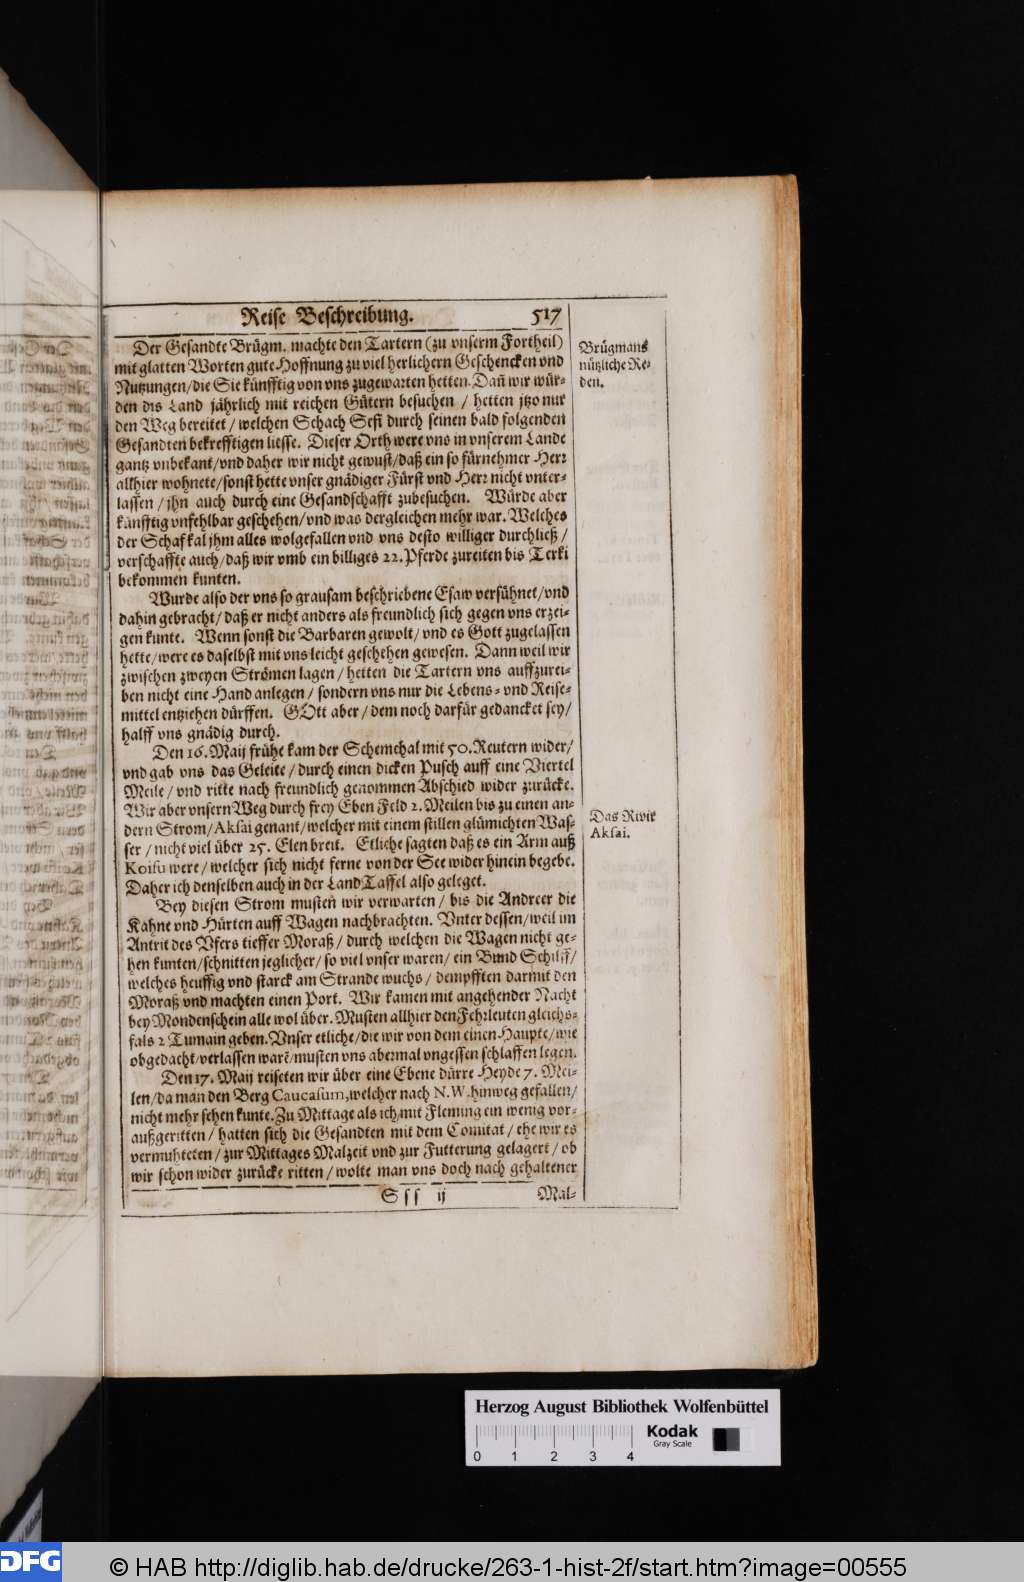 Reise Beschreibung. 517
Der Gesandte Brügm. machte den Tartern (zu vnserm Fortheil)
mit glatten Worten gute Hoffnung zu viel herlichern Geschencken vnd
Nutzungen/die Sie künfftig von vns zugewarten hetten. Dañ wir wür-
den dis Land jährlich mit reichen Gütern besuchen / hetten jtzo nur
den Weg bereitet / welchen Schach Sefi durch seinen bald folgenden
Gesandten bekrefftigen liesse. Dieser Orth were vns in vnserem Lande
gantz vnbekant/vnd daher wir nicht gewust/daß ein so fürnehmer Herr
allhier wohnete/sonst hette vnser gnädiger Fürst vnd Herr nicht vnter-
lassen / jhn auch durch eine Gesandschafft zubesuchen. Würde aber
künfftig vnfehlbar geschehen/vnd was dergleichen mehr war. Welches
der Schafkal jhm alles wolgefallen vnd vns desto williger durchließ /
verschaffte auch/daß wir vmb ein billiges 22. Pferde zureiten bis Terki
bekommen kunten.
Brügmans
nützliche Re-
den.
Wurde also der vns so grausam beschriebene Esaw versühnet/vnd
dahin gebracht/ daß er nicht anders als freundlich sich gegen vns erzei-
gen kunte. Wenn sonst die Barbaren gewolt/ vnd es Gott zugelassen
hette/were es daselbst mit vns leicht geschehen gewesen. Dann weil wir
zwischen zweyen Strömen lagen / hetten die Tartern vns auffzurei-
ben nicht eine Hand anlegen / sondern vns nur die Lebens- vnd Reise-
mittel entziehen dürffen. GOtt aber / dem noch darfür gedancket sey/
halff vns gnädig durch.
Den 16. Maij frühe kam der Schemchal mit 50. Reutern wider/
vnd gab vns das Geleite / durch einen dicken Pusch auff eine Viertel
Meile / vnd ritte nach freundlich genommen Abschied wider zurücke.
Wir aber vnsern Weg durch frey Eben Feld 2. Meilen bis zu einen an-
dern Strom/Aksai genant/welcher mit einem stillen glümichten Was-
ser / nicht viel über 25. Elen breit. Etliche sagten daß es ein Arm auß
Koisu were / welcher sich nicht ferne von der See wider hinein begebe.
Daher ich denselben auch in der Land Taffel also geleget.
Das Rivir
Aksai.
Bey diesen Strom musteñ wir verwarten / bis die Andreer die
Kahne vnd Hürten auff Wagen nachbrachten. Vnter dessen/weil im
Antrit des Vfers tieffer Moraß / durch welchen die Wagen nicht ge-
hen kunten/schnitten jeglicher/ so viel vnser waren/ ein Bund Schilff/
welches heuffig vnd starck am Strande wuchs / dempfften darmit den
Moraß vnd machten einen Port. Wir kamen mit angehender Nacht
bey Mondenschein alle wol über. Musten allhier den Fehrleuten gleichs-
fals 2 Tumain geben. Vnser etliche/die wir von dem einen Haupte/wie
obgedacht/verlassen warē/musten vns abermal vngessen schlaffen legen.
Den 17. Maij reiseten wir über eine Ebene dürre Heyde 7. Mei-
len/da man den Berg Caucasum, welcher nach N.W. hinweg gefallen/
nicht mehr sehen kunte. Zu Mittage als ich mit Fleming ein wenig vor-
außgeritten / hatten sich die Gesandten mit dem Comitat / ehe wir es
vermuhteten / zur Mittages Malzeit vnd zur Futterung gelagert / ob
wir schon wider zurücke ritten / wolte man vns doch nach gehaltener
Sss ij Mal-
Herzog August Bibliothek Wolfenbüttel
Kodak
Gray Scale
0 1 2 3 4
DFG © HAB http://diglib.hab.de/drucke/263-1-hist-2f/start.htm?image=00555